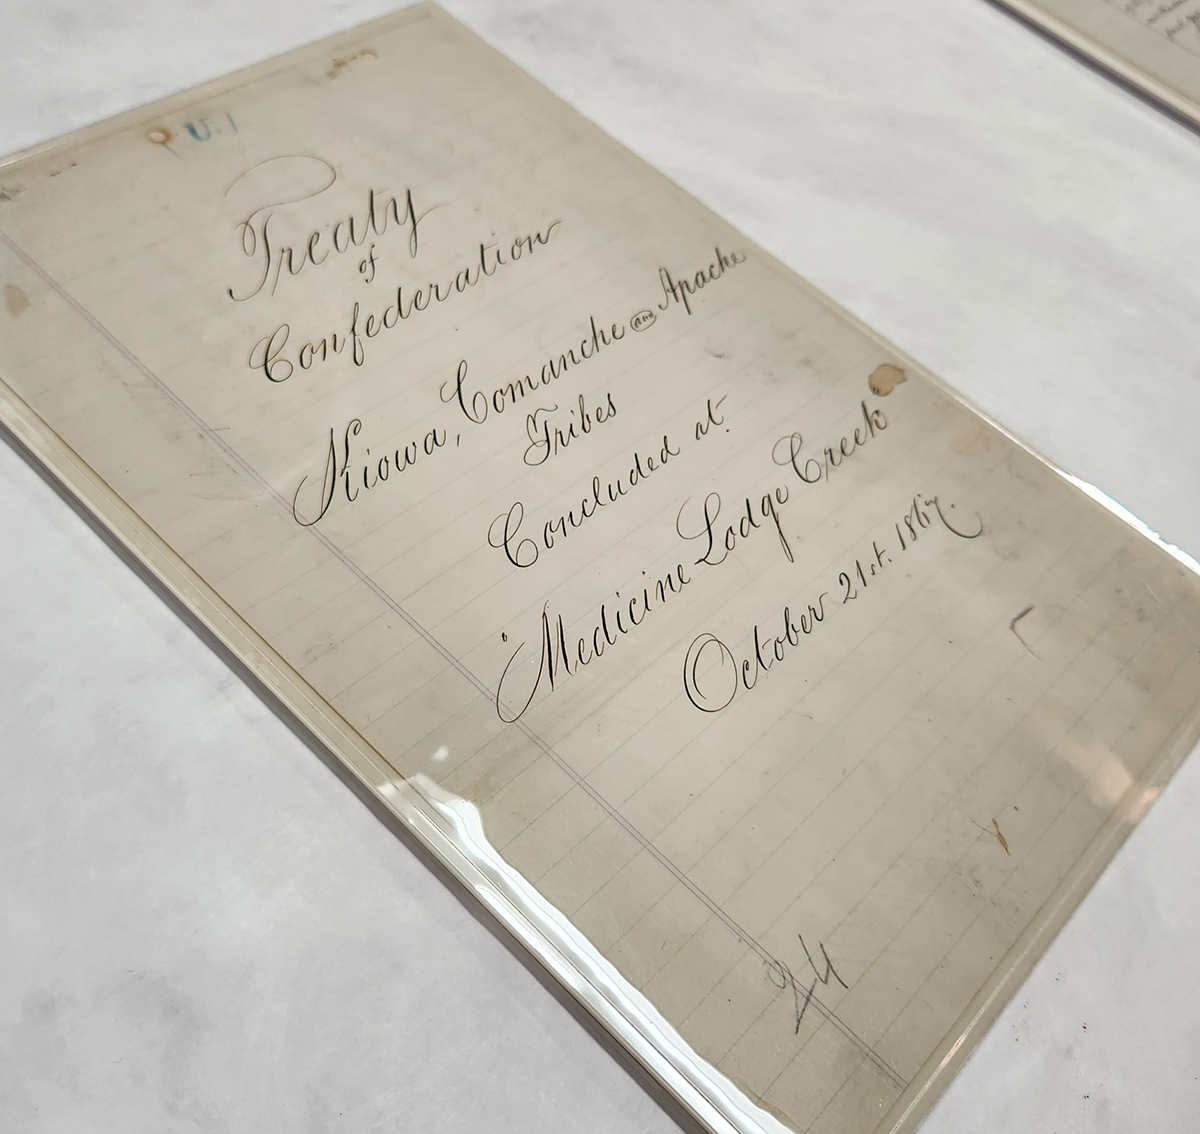 Treaty
of
Confederation
Kiowa, Comanche and Apache
Tribes
Concluded at
"Medicine Lodge Creek"
October 21st. 1867.
24